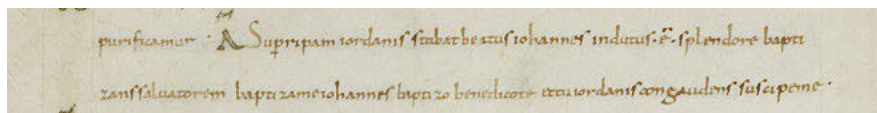 purificamur · A Sup ripam iordanis stabat beatus iohannes indutus · ē · splendore bapti
zans saluatorem baptiza me iohannes baptizo benedico te et tu iordanis congaudens suscipe me ·